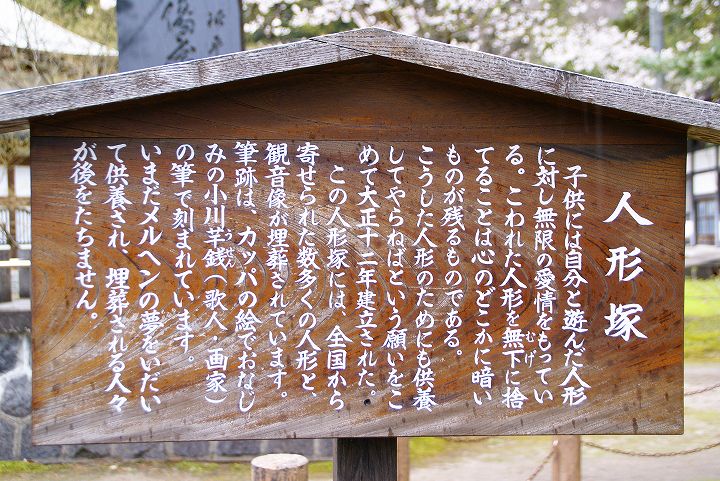 人形塚
子供には自分と遊んだ人形
に対し無限の愛情をもってい
る。こわれた人形を無下に捨
むげ
てることは心のどこかに暗い
ものが残るものである。
こうした人形のためにも供養
してやらねばという願いをこ
めて大正十二年建立された。
この人形塚には、全国から
寄せられた数多くの人形と、
観音像が埋葬されています。
筆跡は、カッパの絵でおなじ
みの小川芋銭(歌人・画家)
うせん
の筆で刻まれています。
いまだメルヘンの夢をいだい
て供養され 埋葬される人々
が後をたちません。